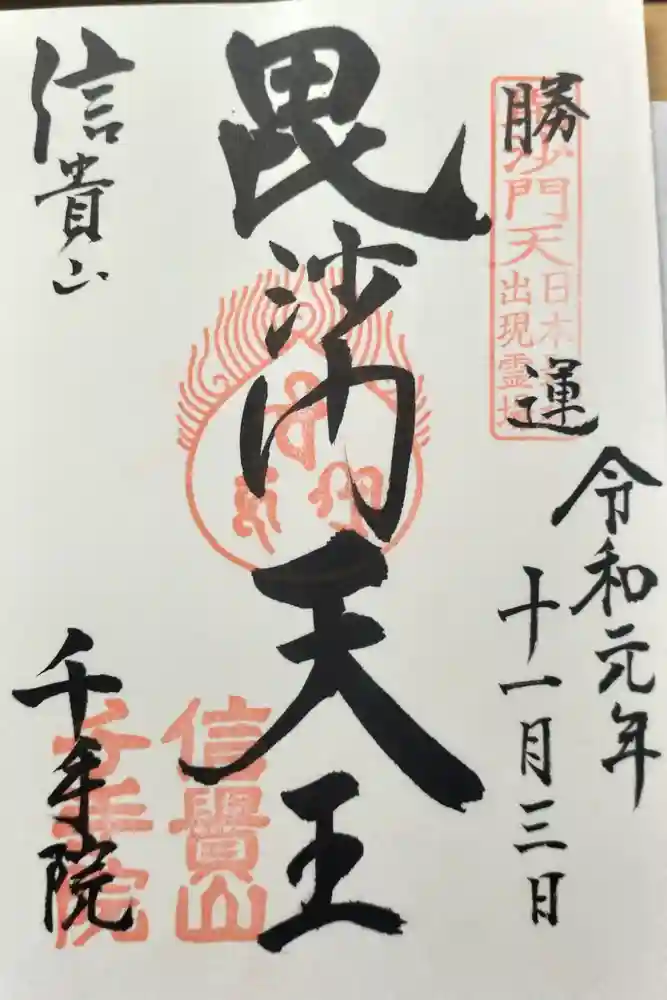 勝運
毘沙門天
日本
出現霊場
令和元年
十一月三日
毘沙門天王
信貴山
千手院
信貴山
千手院